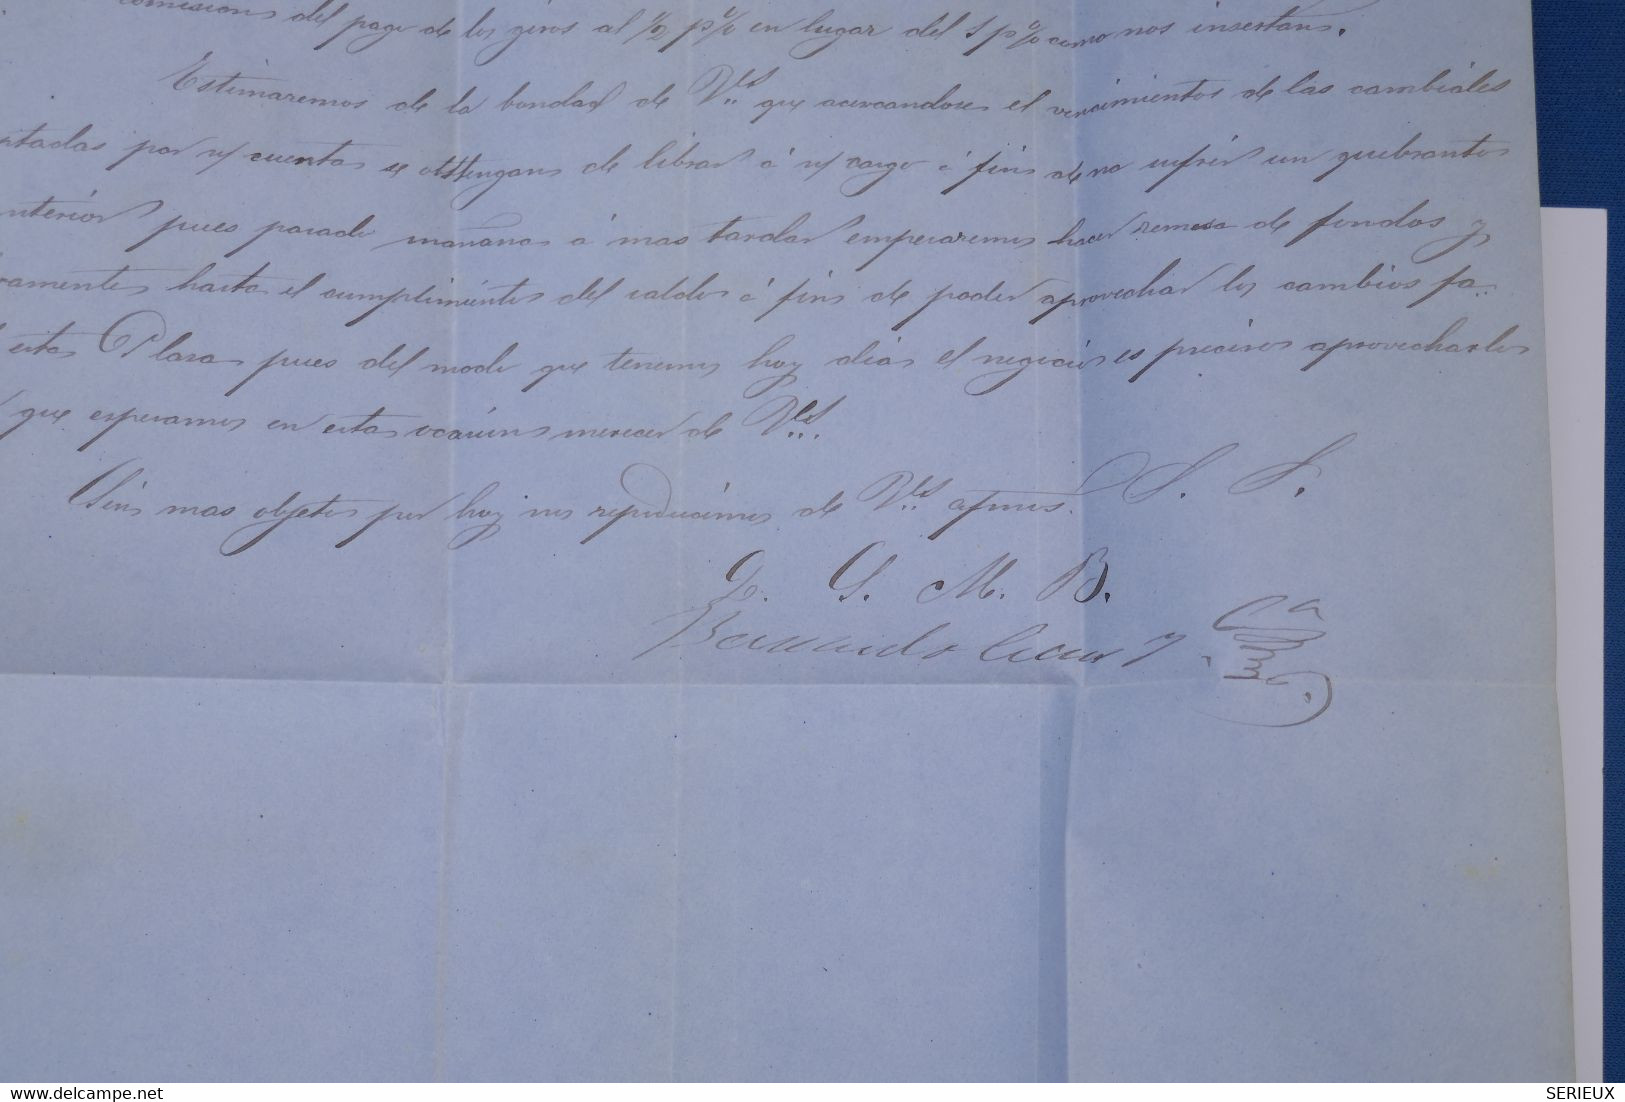 comisions del pago de los giros al 1/2 p% en lugar del 1 p% como nos insertans.
Estimaremos de la bondad de V.ds que acercandoses el vencimientos de las cambiales
ptadas por n/ cuentas se obstengans de librar á n/ cargo á fins de no sufrir un quebrantos
nterior pues pasado mañanas á mas tardar empesaremos hacer remesa de fondos y
vamentes hasta el cumplimientos del saldos á fins de poder aprovechar los cambios fa..
estas Plasa pues del modo que tenemos hoy dias el negocios es precisos aprovecharles
que esperamos en estas ocasions merecer de V.ds.
Sins mas objetos por hoy nos reproducimos de V.ds afmos. S. S.
Q. S. M. B.
y C.a
delcampe.net
SERIEUX